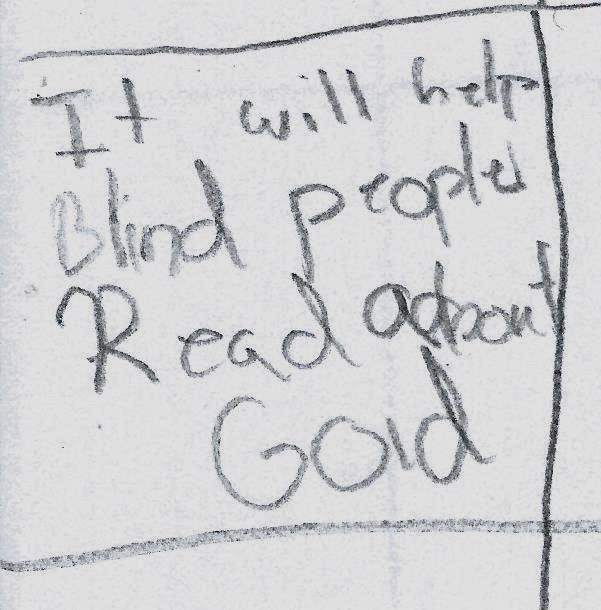 It will help
Blind people
Read about
Gold